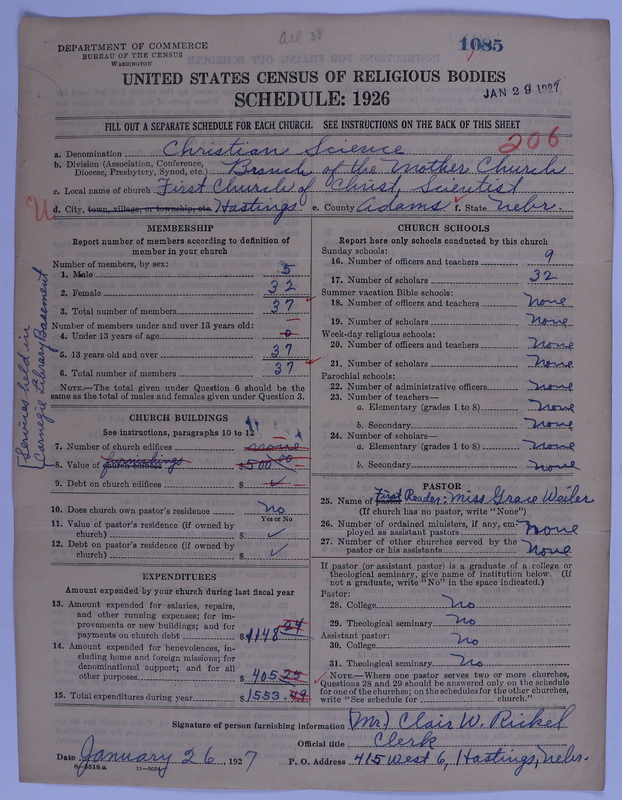 DEPARTMENT OF COMMERCE
BUREAU OF THE CENSUS
WASHINGTON
1085
UNITED STATES CENSUS OF RELIGIOUS BODIES
SCHEDULE: 1926
JAN 29 1927
FILL OUT A SEPARATE SCHEDULE FOR EACH CHURCH. SEE INSTRUCTIONS ON THE BACK OF THIS SHEET
206
a. Denomination Christian Science
b. Division (Association, Conference, Diocese, Presbytery, Synod, etc.) Branch of the Mother Church
c. Local name of church First Church of Christ, Scientist
d. City, town, village, or township, etc. Hastings e. County Adams f. State Nebr.
Services held in
Carnegie Library Basement
MEMBERSHIP
Report number of members according to definition of
member in your church
Number of members, by sex:
1. Male 5
2. Female 32
3. Total number of members 37
Number of members under and over 13 years old:
4. Under 13 years of age 0
5. 13 years old and over 37
6. Total number of members 37
NOTE.—The total given under Question 6 should be the
same as the total of males and females given under Question 3.
CHURCH BUILDINGS
See instructions, paragraphs 10 to 12
7. Number of church edifices none
8. Value of church edifices furnishings $500 00
9. Debt on church edifices $
10. Does church own pastor's residence No
Yes or No
11. Value of pastor's residence (if owned by
church) $
12. Debt on pastor's residence (if owned by
church) $
EXPENDITURES
Amount expended by your church during last fiscal year
13. Amount expended for salaries, repairs,
and other running expenses; for im-
provements or new buildings; and for
payments on church debt $1148 24
14. Amount expended for benevolences, in-
cluding home and foreign missions; for
denominational support; and for all
other purposes $405.25
15. Total expenditures during year $1553.49
CHURCH SCHOOLS
Report here only schools conducted by this church
Sunday schools:
16. Number of officers and teachers 9
17. Number of scholars 32
Summer vacation Bible schools:
18. Number of officers and teachers none
19. Number of scholars none
Week-day religious schools:
20. Number of officers and teachers none
21. Number of scholars none
Parochial schools:
22. Number of administrative officers none
23. Number of teachers—
a. Elementary (grades 1 to 8) none
b. Secondary none
24. Number of scholars—
a. Elementary (grades 1 to 8) none
b. Secondary none
PASTOR
25. Name of pastor First Reader: Miss Grace Weiler
(If church has no pastor, write "None")
26. Number of ordained ministers, if any, em-
ployed as assistant pastors none
27. Number of other churches served by the
pastor or his assistants none
If pastor (or assistant pastor) is a graduate of a college or
theological seminary, give name of institution below. (If
not a graduate, write "No" in the space indicated.)
Pastor:
28. College No
29. Theological seminary No
Assistant pastor:
30. College No
31. Theological seminary No
NOTE.—Where one pastor serves two or more churches,
Questions 28 and 29 should be answered only on the schedule
for one of the churches; on the schedules for the other churches,
write "See schedule for church."
Signature of person furnishing information (Mr.) Clair W. Rickel
Official title Clerk
Date January 26, 1927 P. O. Address 415 West 6, Hastings, Nebr.